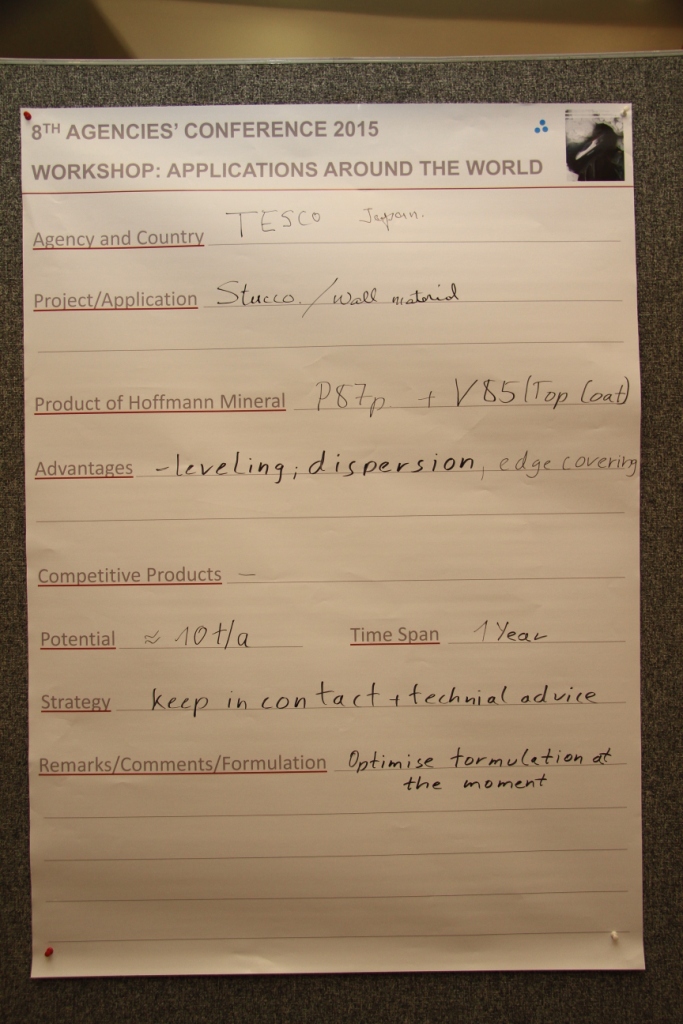 8TH AGENCIES' CONFERENCE 2015
WORKSHOP: APPLICATIONS AROUND THE WORLD
Agency and Country TESCO Japan.
Project/Application Stucco. / Wall material
Product of Hoffmann Mineral P87p + V85 (Top Coat)
Advantages - leveling; dispersion, edge covering
Competitive Products —
Potential ≈ 10 t/a Time Span 1 Year
Strategy keep in contact + technial advice
Remarks/Comments/Formulation Optimise formulation at
the moment